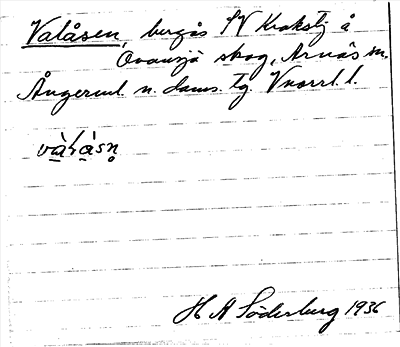 Valåsen, bergås SV Krokstj å
Ovansjö skog, Arnäs sn.
Ångerml. n. doms. tg. V norrl. l.
vàlàsn̥
H A Söderberg 1936